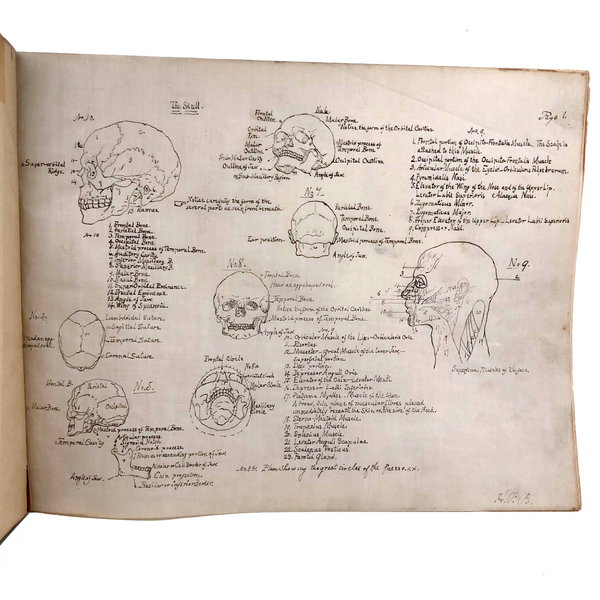 The Skull.
Page 1.
No. 10.
Super-orbital
Ridge.
Frontal
Outline
Orbital
Malar
Outline
Malar Bone.
Notice the form of the Orbital Cavities
Mastoid process of
Temporal Bone.
Occipital Outline
Angle of Jaw.
Notice carefully the form of the
several parts as seen from beneath.
1. Frontal Bone.
2. Parietal Bone.
3. Temporal Bone.
4. Occipital Bone.
5. Mastoid process of Temporal Bone.
6. Auditory Cavity.
7. Inferior Maxillary B.
8. Superior Maxillary B.
9. Malar Bone.
10. Nasal Bone.
11. Super Orbital Eminence.
12. Frontal Eminence.
13. Angle of Jaw.
14. Wing of Sphenoid.
No. 7.
Parietal Bone.
Temporal Bone.
Occipital Bone.
Ear position
Mastoid process of Temporal Bone.
Angle of Jaw.
No. 9.
1. Frontal portion of Occipito-Frontalis Muscle. The Scalp is
attached to this Muscle.
2. Occipital portion of the Occipito-Frontalis Muscle
4. Pyramidalis Nasi.
5. Elevator of the Wing of the Nose and of the Upper Lip.
Levator Labii Superioris Alaeque Nasi.
6. Zygomaticus Minor.
7. Zygomaticus Major.
8. Proper Elevator of the Upper Lip. Levator Labii Superioris
9. Compressor Nasi.
No. 9.
No. 8.
Frontal Bone.
Temporal Bone.
Notice the form of the Orbital Cavities
Mastoid process of Temporal Bone.
Angle of Jaw.
Lambdoidal Suture.
Sagittal Suture.
Temporal Bone.
Coronal Suture.
No. 5.
Frontal B.
Parietal
Occipital
Malar Bone.
Mastoid process of Temporal Bone.
Temporal Cavity
Condyle process
Sigmoid Notch.
Coronoid process.
Ramus or ascending portion of Jaw
Angle of Jaw.
Chin projection.
Basilar or Inferior Border.
Frontal Circle
Malar Circle
Maxillary
Circle
No. 9
10. Orbicular Muscle of the Lips-Orbicularis Oris.
11. Buccinator.
12. Masseter-great Muscle of the lower Jaw-
Superficial portion.
13. Deep portion.
14. Depressor Anguli Oris.
15. Elevator of the Chin-Levator Menti.
16. Depressor Labii Inferioris
17. Platysma Myoides-Muscle of the Skin.
A broad, thin plane of muscular fibres placed
immediately beneath the Skin on the side of the Neck.
18. Sterno-Mastoid Muscle.
19. Trapezius Muscle.
20. Splenius Muscle.
21. Levator Anguli Scapulae.
22. Scalenus Posticus.
23. Parotid Gland.
Plan showing the great circles of the face